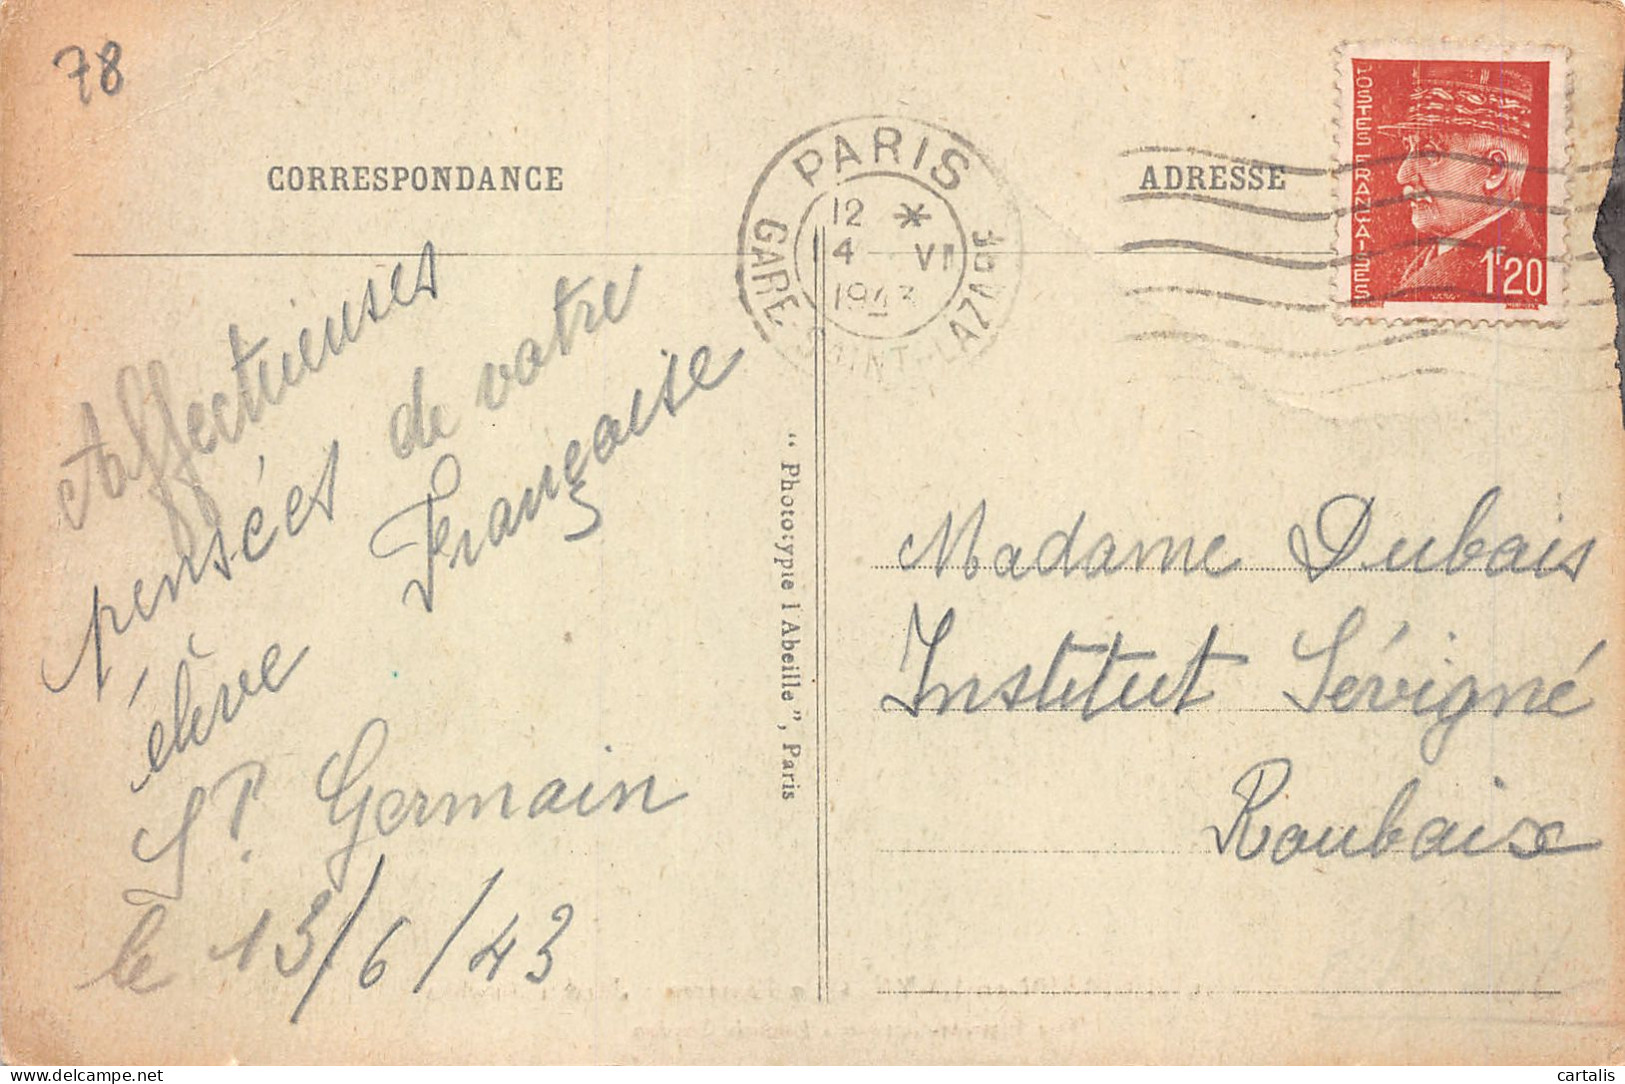 78
CORRESPONDANCE
ADRESSE
PARIS
GARE SAINT-LAZARE
12 *
4 VI
1943
POSTES FRANÇAISES
1F20
Affectueuses
pensées de votre
élève Française
St. Germain
le 13/6/43
" Phototypie l'Abeille ", Paris
Madame Dubois
Institut Sévigné
Roubaix
cartalis